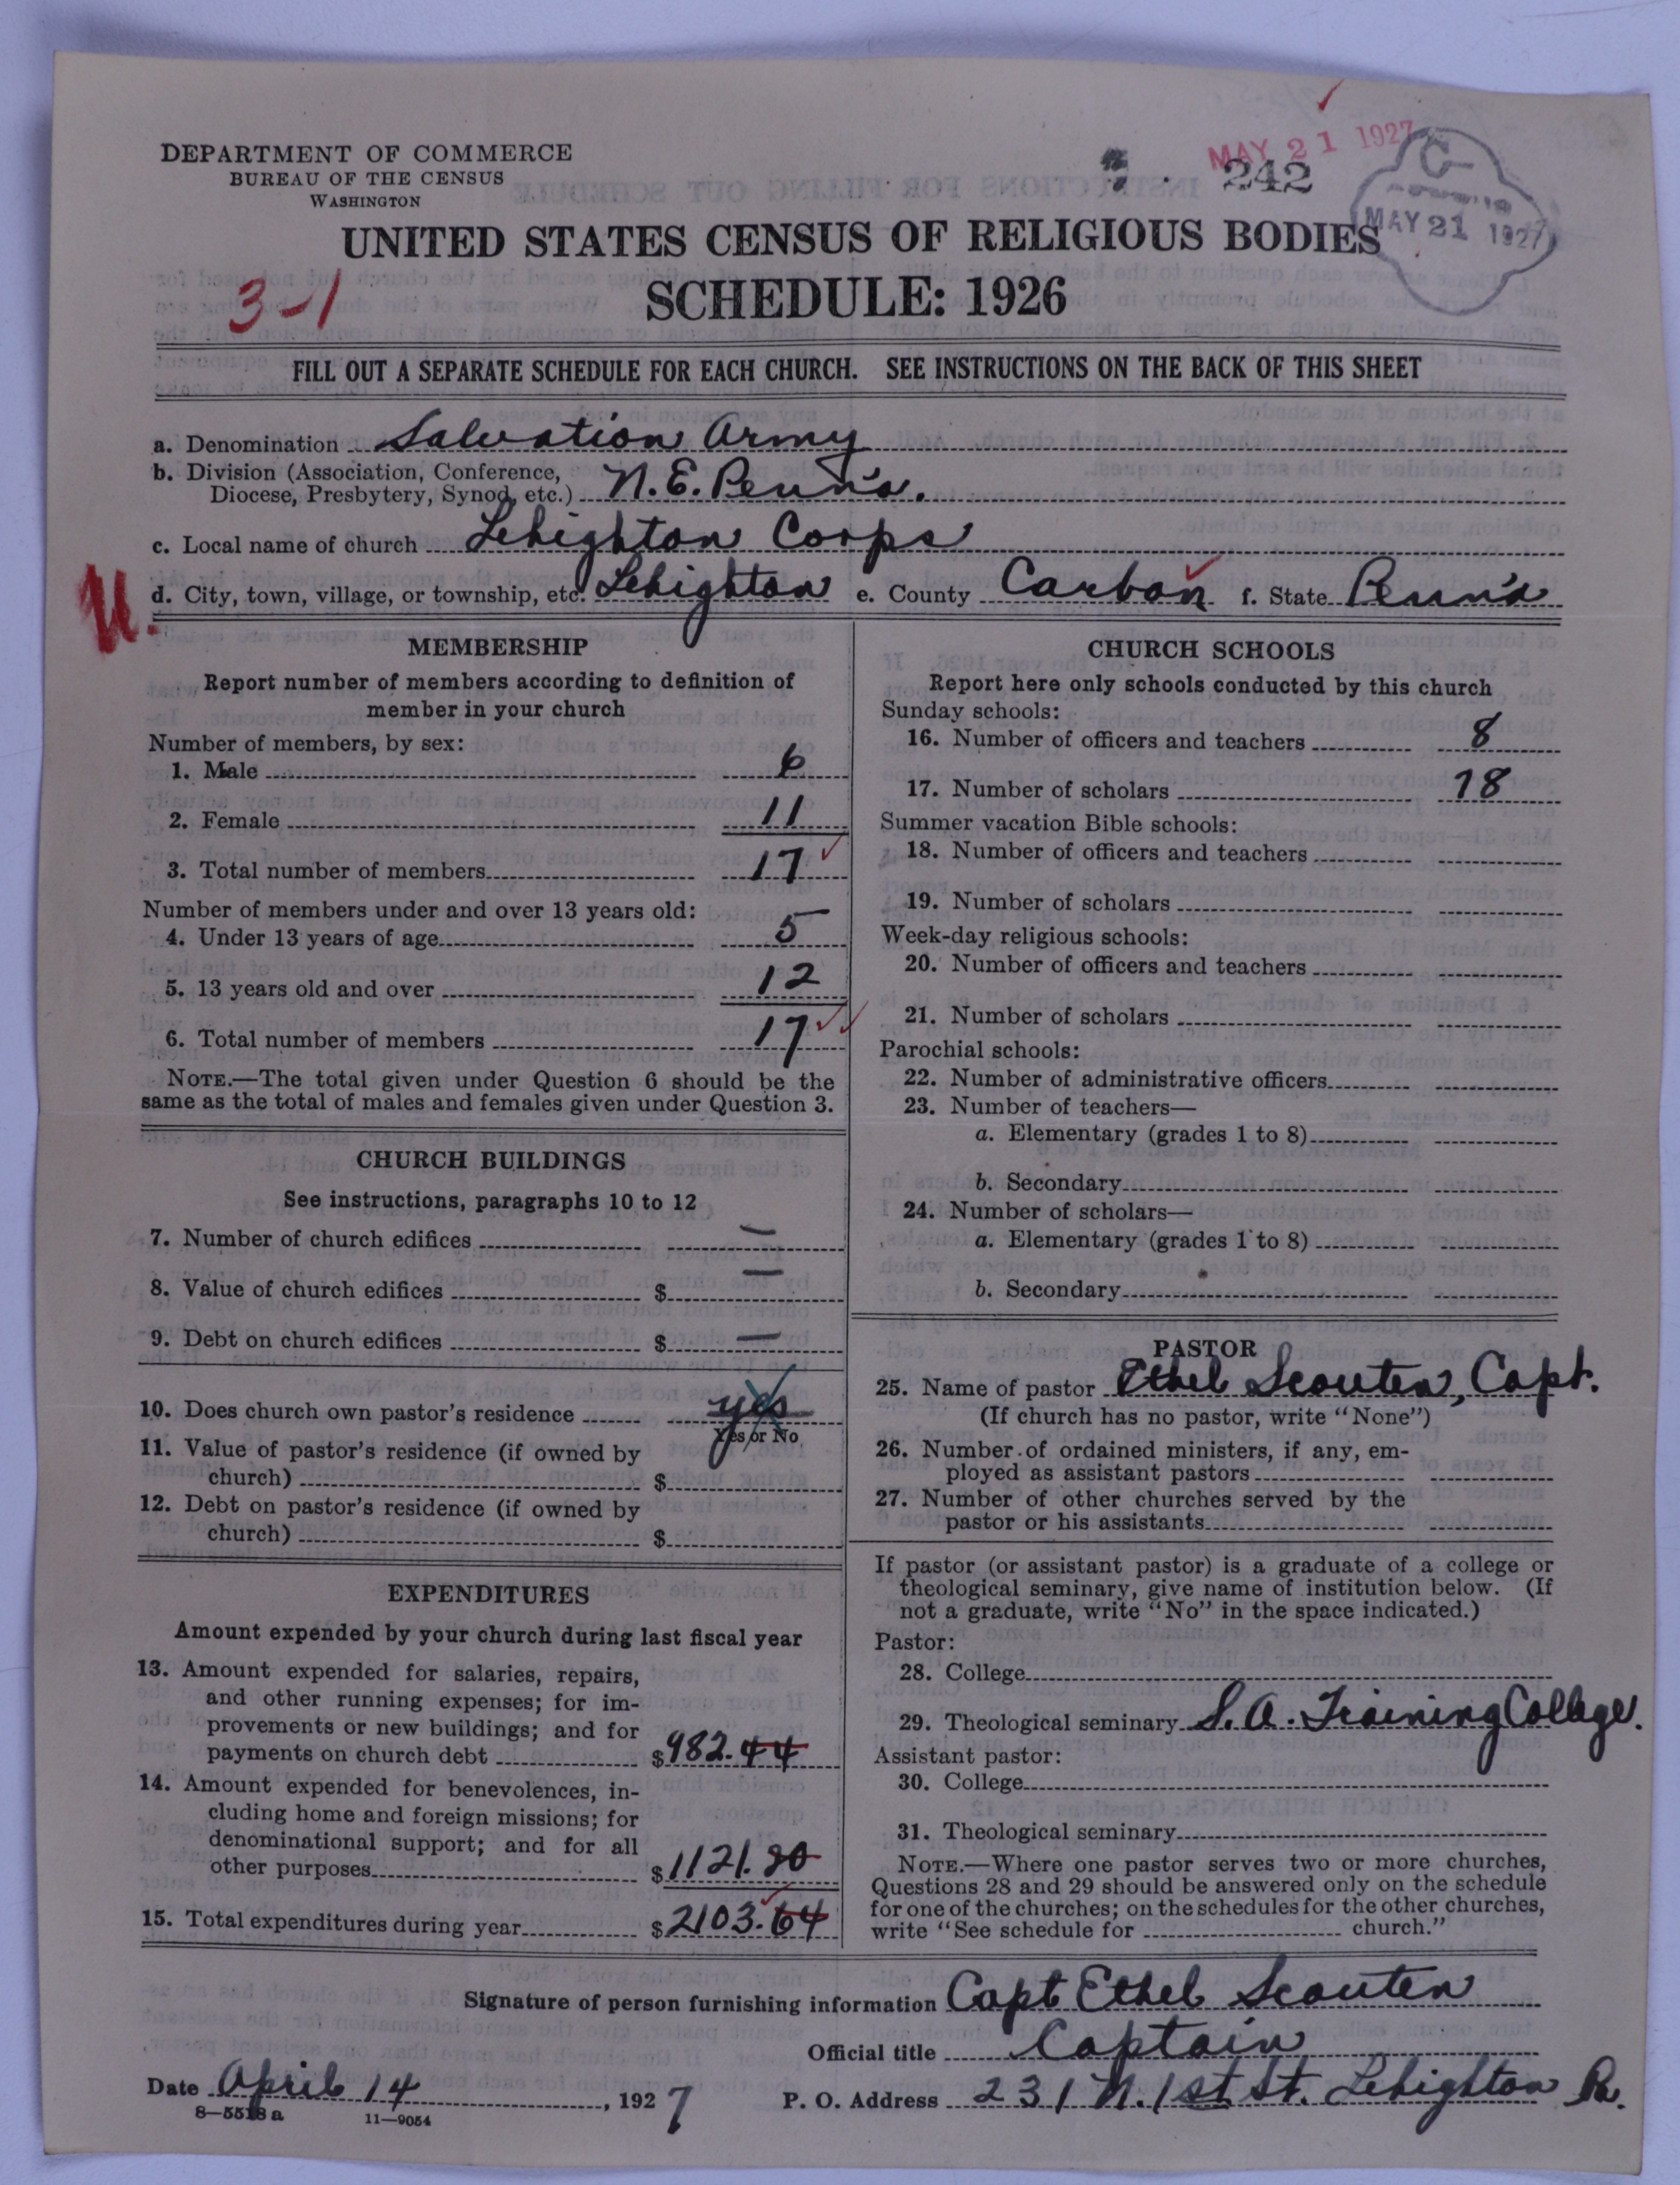 MAY 21 1927
242
MAY 21 1927
DEPARTMENT OF COMMERCE
BUREAU OF THE CENSUS
WASHINGTON
UNITED STATES CENSUS OF RELIGIOUS BODIES
SCHEDULE: 1926
3-1
FILL OUT A SEPARATE SCHEDULE FOR EACH CHURCH. SEE INSTRUCTIONS ON THE BACK OF THIS SHEET
a. Denomination Salvation Army
b. Division (Association, Conference,
Diocese, Presbytery, Synod, etc.) N.E. Penn'a.
c. Local name of church Lehighton Corps
U.
d. City, town, village, or township, etc. Lehighton e. County Carbon f. State Penn'a
MEMBERSHIP
Report number of members according to definition of
member in your church
Number of members, by sex:
1. Male 6
2. Female 11
3. Total number of members 17
Number of members under and over 13 years old:
4. Under 13 years of age 5
5. 13 years old and over 12
6. Total number of members 17
NOTE.—The total given under Question 6 should be the
same as the total of males and females given under Question 3.
CHURCH BUILDINGS
See instructions, paragraphs 10 to 12
7. Number of church edifices —
8. Value of church edifices $ —
9. Debt on church edifices $ —
10. Does church own pastor's residence yes
Yes or No
11. Value of pastor's residence (if owned by
church) $
12. Debt on pastor's residence (if owned by
church) $
EXPENDITURES
Amount expended by your church during last fiscal year
13. Amount expended for salaries, repairs,
and other running expenses; for im-
provements or new buildings; and for
payments on church debt $982.44
14. Amount expended for benevolences, in-
cluding home and foreign missions; for
denominational support; and for all
other purposes $1121.20
15. Total expenditures during year $2103.64
CHURCH SCHOOLS
Report here only schools conducted by this church
Sunday schools:
16. Number of officers and teachers 8
17. Number of scholars 78
Summer vacation Bible schools:
18. Number of officers and teachers
19. Number of scholars
Week-day religious schools:
20. Number of officers and teachers
21. Number of scholars
Parochial schools:
22. Number of administrative officers
23. Number of teachers—
a. Elementary (grades 1 to 8)
b. Secondary
24. Number of scholars—
a. Elementary (grades 1 to 8)
b. Secondary
PASTOR
25. Name of pastor Ethel Scouten, Capt.
(If church has no pastor, write "None")
26. Number of ordained ministers, if any, em-
ployed as assistant pastors
27. Number of other churches served by the
pastor or his assistants
If pastor (or assistant pastor) is a graduate of a college or
theological seminary, give name of institution below. (If
not a graduate, write "No" in the space indicated.)
Pastor:
28. College
29. Theological seminary S.A. Training College.
Assistant pastor:
30. College
31. Theological seminary
NOTE.—Where one pastor serves two or more churches,
Questions 28 and 29 should be answered only on the schedule
for one of the churches; on the schedules for the other churches,
write "See schedule for church."
Signature of person furnishing information Capt Ethel Scouten
Official title Captain
Date April 14, 1927 P. O. Address 231 N. 1st St. Lehighton Pa.
8—5518 a 11—9054